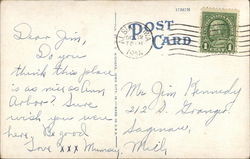 17828N
POST
CARD
Dear Jim,
Do you
think this place
is as nice as Ann
Arbor? Sure
wish you were
here. Be good
Love xxx Mummy.
Mr Jim Kennedy
212 S. Granger
Saginaw,
Mich.
1
1